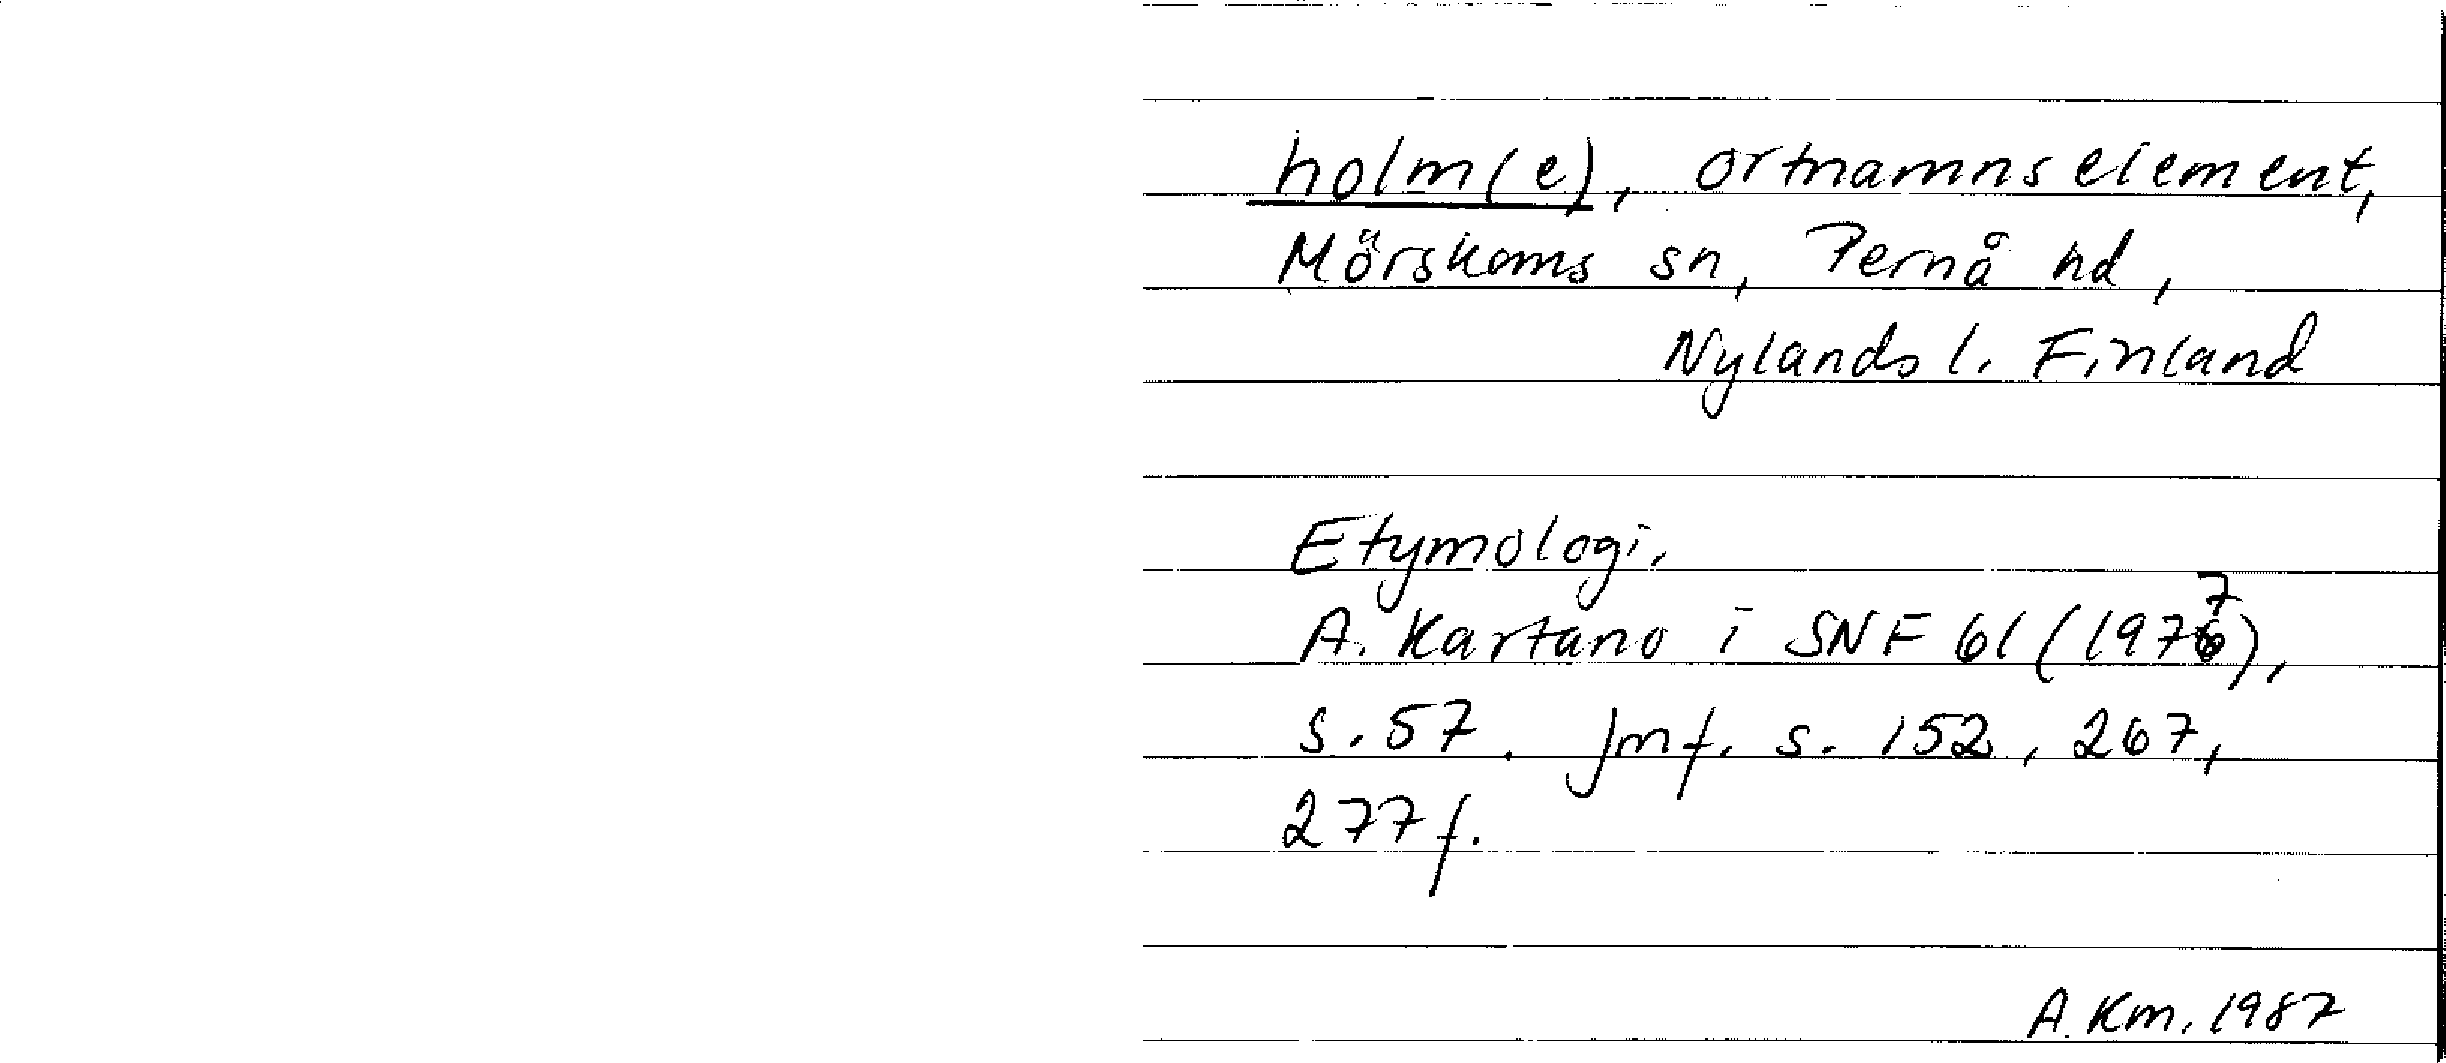 holm(e), ortnamnselement,
Mörskoms sn, Pernå hd,
Nylands l. Finland
Etymologi.
A. Kartano i SNF 61 (1977),
s. 57. Jmf. s. 152, 267,
277 f.
A. Km. 1987